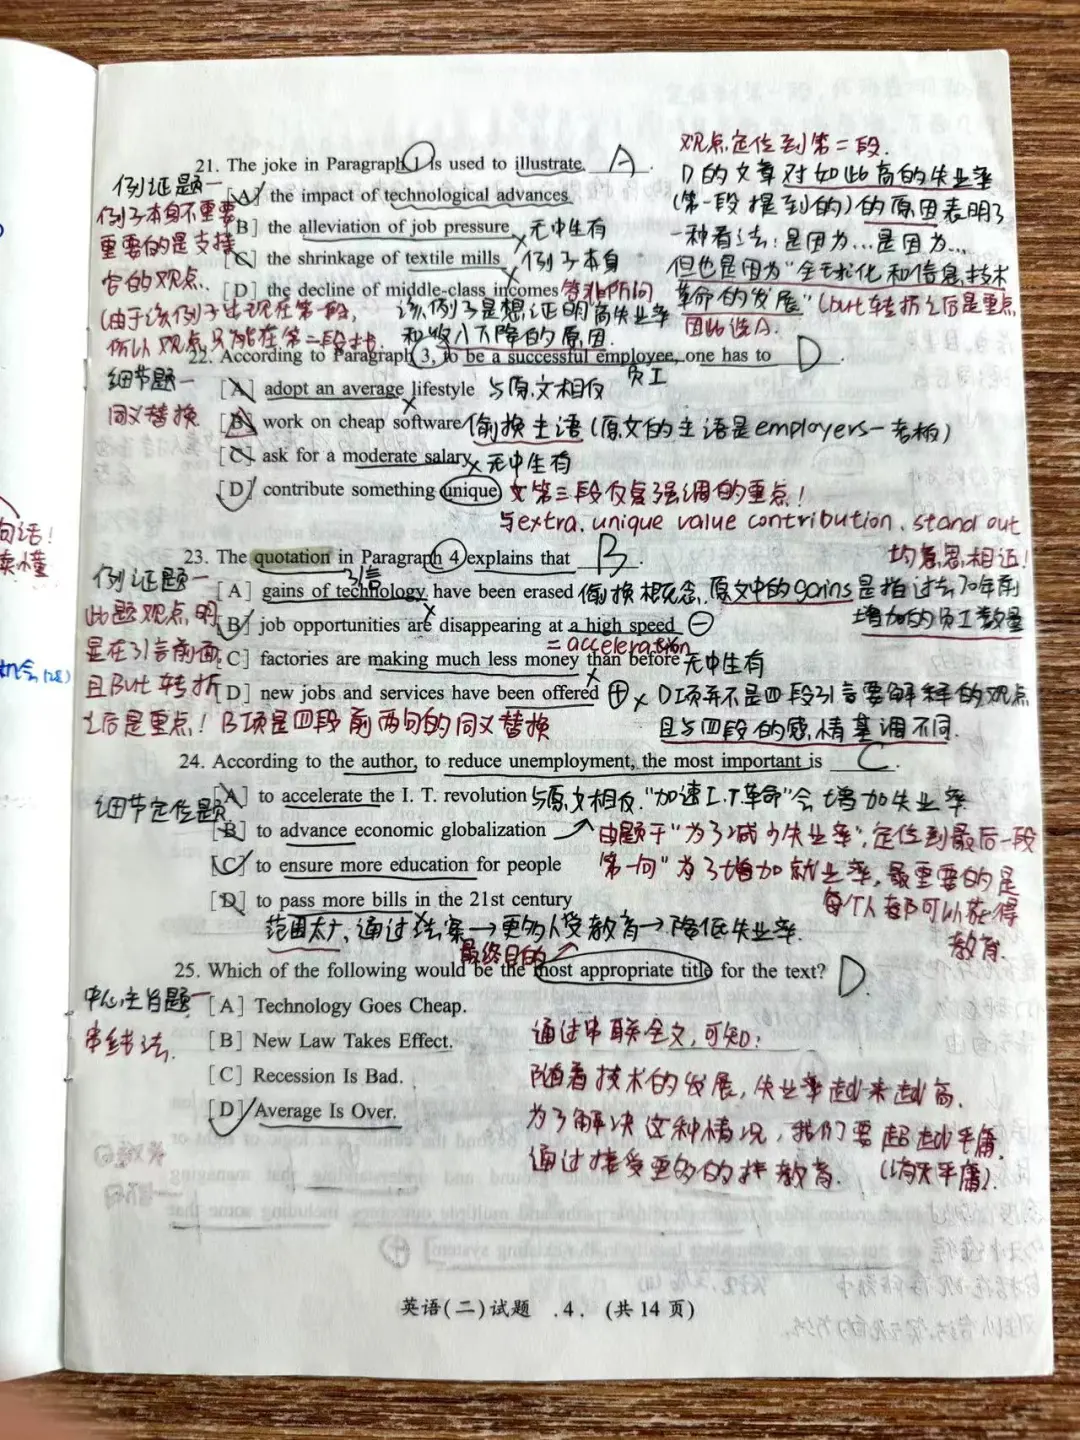 观点定位到第二段.
21. The joke in Paragraph 1 is used to illustrate A .
D的文章对如此高的失业率
例证题一
[A] the impact of technological advances
(第一段提到的)的原因表明了
例子本身不重要
[B] the alleviation of job pressure 无中生有
一种看法:是因为...是因为...
重要的是支撑
[C] the shrinkage of textile mills 例子本身
但也是因为"全球化和信息技术
它的观点.
[D] the decline of middle-class incomes 答非所问
革命的发展"(but转折之后是重点
(由于该例子出现在第一段, 该例子是想证明高失业率
因此选A.
所以观点只能在第二段找. 和收入下降的原因.
22. According to Paragraph 3, to be a successful employee, one has to D .
员工
细节题一
[A] adopt an average lifestyle 与原文相反
同义替换
[B] work on cheap software 偷换主语(原文的主语是employers一老板)
[C] ask for a moderate salary 无中生有
[D] contribute something unique 文第三段反复强调的重点!
与extra. unique value contribution. stand out
均意思相近!
23. The quotation in Paragraph 4 explains that B .
引言
例证题一
[A] gains of technology have been erased 偷换概念.原文中的gains是指过去70年前
增加的员工数量
此题观点明
[B] job opportunities are disappearing at a high speed
= acceleration
显在引言前面
[C] factories are making much less money than before 无中生有
且But转折
[D] new jobs and services have been offered D项并不是四段引言要解释的观点
之后是重点! B项是四段前两句的同义替换
且与四段的感情基调不同.
24. According to the author, to reduce unemployment, the most important is C .
细节定位题
[A] to accelerate the I. T. revolution 与原文相反."加速I.T革命"会增加失业率
[B] to advance economic globalization
由题干"为了减少失业率",定位到最后一段
[C] to ensure more education for people
第一句"为了增加就业率,最重要的是
[D] to pass more bills in the 21st century
每个人都可以获得
教育.
范围太广.通过法案→更多人受教育→降低失业率.
最终目的
25. Which of the following would be the most appropriate title for the text? D.
中心主旨题一
[A] Technology Goes Cheap.
串线法.
[B] New Law Takes Effect.
通过串联全文,可知:
[C] Recession Is Bad.
随着技术的发展,失业率越来越高.
[D] Average Is Over.
为了解决这种情况,我们要超越平庸.
通过接受更多的教育. (消灭平庸).
英语(二)试题 .4. (共14页)